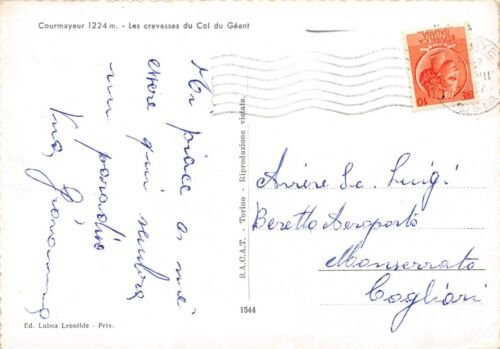 Courmayeur 1224 m. - Les crevasses du Col du Géant
Mi piace assai
essere qui sembra
un paradiso
S.A.C.A.T. - Torino - Riproduzione vietata
1544
Aviere Sc. Luigi
Beretta Aeroporto
Monserrato
Cagliari
Ed. Luboz Leonilde - Priv.